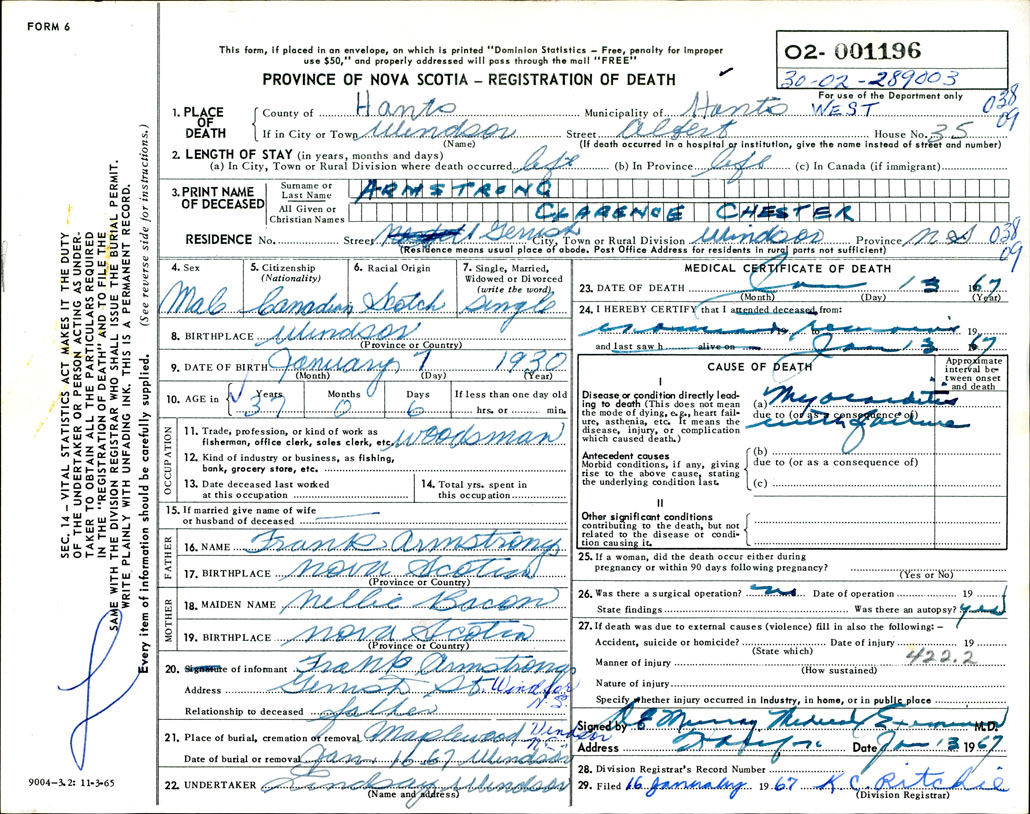 FORM 6
This form, if placed in an envelope, on which is printed "Dominion Statistics – Free, penalty for improper
use $50," and properly addressed will pass through the mail "FREE"
PROVINCE OF NOVA SCOTIA – REGISTRATION OF DEATH
02- 001196
30-02-289003
For use of the Department only
038
09
1. PLACE OF DEATH
County of Hants Municipality of Hants WEST
If in City or Town Windsor Street Albert House No. 35
(Name) (If death occurred in a hospital or institution, give the name instead of street and number)
2. LENGTH OF STAY (in years, months and days)
(a) In City, Town or Rural Division where death occurred life (b) In Province life (c) In Canada (if immigrant)
3. PRINT NAME OF DECEASED
Surname or Last Name ARMSTRONG
All Given or Christian Names CLARENCE CHESTER
RESIDENCE No. Street Gerrish City, Town or Rural Division Windsor Province N S 038
09
(Residence means usual place of abode. Post Office Address for residents in rural parts not sufficient)
4. Sex Male
5. Citizenship (Nationality) Canadian
6. Racial Origin Scotch
7. Single, Married, Widowed or Divorced (write the word) Single
8. BIRTHPLACE Windsor
(Province or Country)
9. DATE OF BIRTH January 7 1930
(Month) (Day) (Year)
10. AGE in Years Months Days If less than one day old
37 0 6 hrs. or min.
OCCUPATION
11. Trade, profession, or kind of work as
fisherman, office clerk, sales clerk, etc. Woodsman
12. Kind of industry or business, as fishing,
bank, grocery store, etc.
13. Date deceased last worked
at this occupation
14. Total yrs. spent in
this occupation
15. If married give name of wife
or husband of deceased
FATHER
16. NAME Frank Armstrong
17. BIRTHPLACE Nova Scotia
(Province or Country)
MOTHER
18. MAIDEN NAME Nellie Bacon
19. BIRTHPLACE Nova Scotia
(Province or Country)
20. Signature of informant Frank Armstrong
Address Gerrish St. Windsor
N.S.
Relationship to deceased father
21. Place of burial, cremation or removal Maplewood Windsor
N.S.
Date of burial or removal Jan. 16 67 Windsor
22. UNDERTAKER Lindsay Windsor
(Name and address)
MEDICAL CERTIFICATE OF DEATH
23. DATE OF DEATH Jan 13 1967
(Month) (Day) (Year)
24. I HEREBY CERTIFY that I attended deceased from:
19 to 19
and last saw h alive on Jan 13 1967
CAUSE OF DEATH
Approximate interval between onset and death
I
Disease or condition directly leading to death (This does not mean
the mode of dying, e.g., heart failure, asthenia, etc. It means the
disease, injury, or complication
which caused death.)
(a) Myocarditis
due to (or as a consequence of)
with failure
Antecedent causes
Morbid conditions, if any, giving
rise to the above cause, stating
the underlying condition last.
(b)
due to (or as a consequence of)
(c)
II
Other significant conditions
contributing to the death, but not
related to the disease or condition causing it.
25. If a woman, did the death occur either during
pregnancy or within 90 days following pregnancy?
(Yes or No)
26. Was there a surgical operation? no Date of operation 19
State findings Was there an autopsy?
27. If death was due to external causes (violence) fill in also the following: –
Accident, suicide or homicide? Date of injury 19
(State which)
422.2
Manner of injury
(How sustained)
Nature of injury
Specify whether injury occurred in Industry, in home, or in public place
Signed by E Murray Medical Examiner M.D.
Address Date Jan 13 1967
28. Division Registrar's Record Number
29. Filed 16 January 1967 K. C. Ritchie
(Division Registrar)
SEC. 14 – VITAL STATISTICS ACT MAKES IT THE DUTY
OF THE UNDERTAKER OR PERSON ACTING AS UNDER-
TAKER TO OBTAIN ALL THE PARTICULARS REQUIRED
IN THE "REGISTRATION OF DEATH" AND TO FILE THE
SAME WITH THE DIVISION REGISTRAR WHO SHALL ISSUE THE BURIAL PERMIT.
WRITE PLAINLY WITH UNFADING INK. THIS IS A PERMANENT RECORD.
Every item of information should be carefully supplied. (See reverse side for instructions.)
9004–3.2: 11-3-65